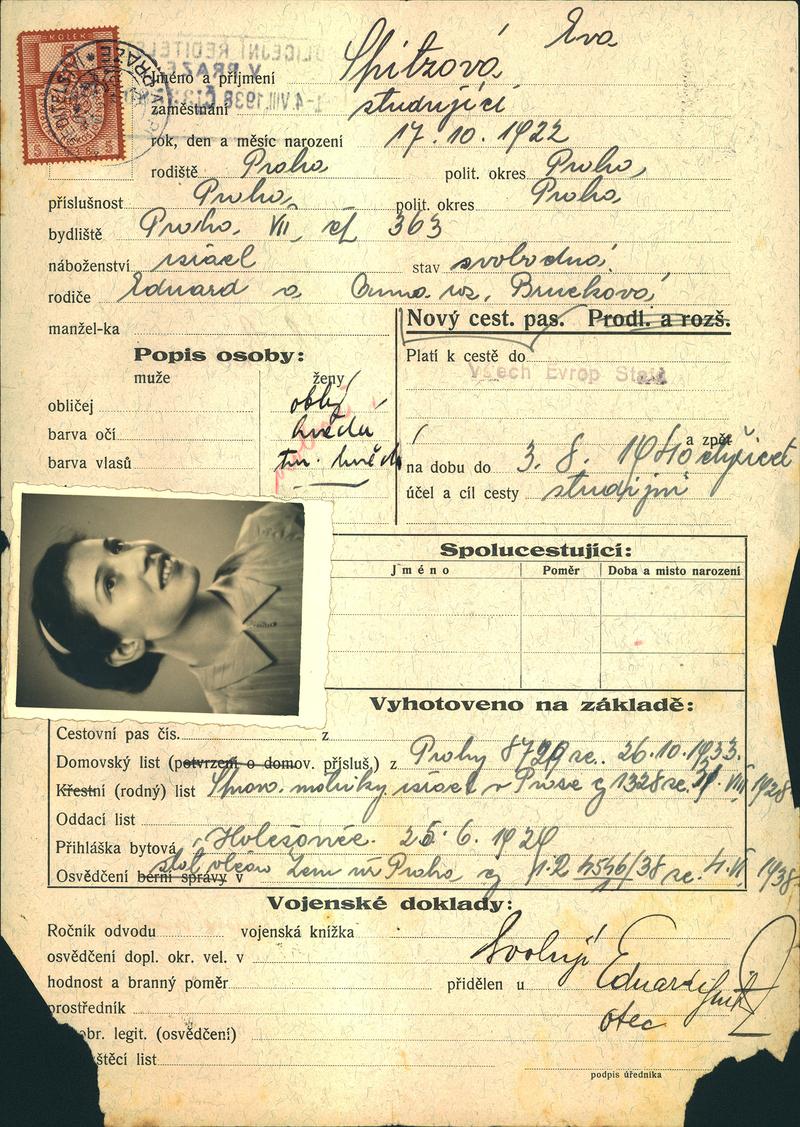 KOLEK
Eva
Jméno a příjmení Spitzová
zaměstnání studující
rok, den a měsíc narození 17. 10. 1922
rodiště Praha polit. okres Praha,
příslušnost Praha, polit. okres Praha
bydliště Praha VII, čp 363
náboženství israel stav svobodná
rodiče Eduard a Anna roz. Brucková
manžel-ka
Nový cest. pas. Prodl. a rozš.
Popis osoby:
Platí k cestě do
Všech Evrop Států
muže ženy
obličej oblý
barva očí hnědá
barva vlasů tm. hněd
a zpět
na dobu do 3. 8. 1940
účel a cíl cesty studijní
Spolucestující:
Jméno Poměr Doba a misto narození
Vyhotoveno na základě:
Cestovní pas čís. z
Domovský list (potvrzení o domov. přísluš.) z Prahy 26.10.1933.
Křestní (rodný) list matriky israel v Praze 1328 VIII 1928
Oddací list
Přihláška bytová Holešovice. 25. 6. 1929
Osvědčení berní správy v Praha 4546/38 4. VI. 1938
Vojenské doklady:
Ročník odvodu vojenská knížka
osvědčení dopl. okr. vel. v Svoluji
hodnost a branný poměr přidělen u Eduard
prostředník otec
obr. legit. (osvědčení)
štěcí list
podpis úředníka